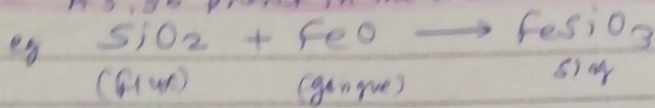 eg SiO2 + FeO → FeSiO3
(flux) (gangue) slag